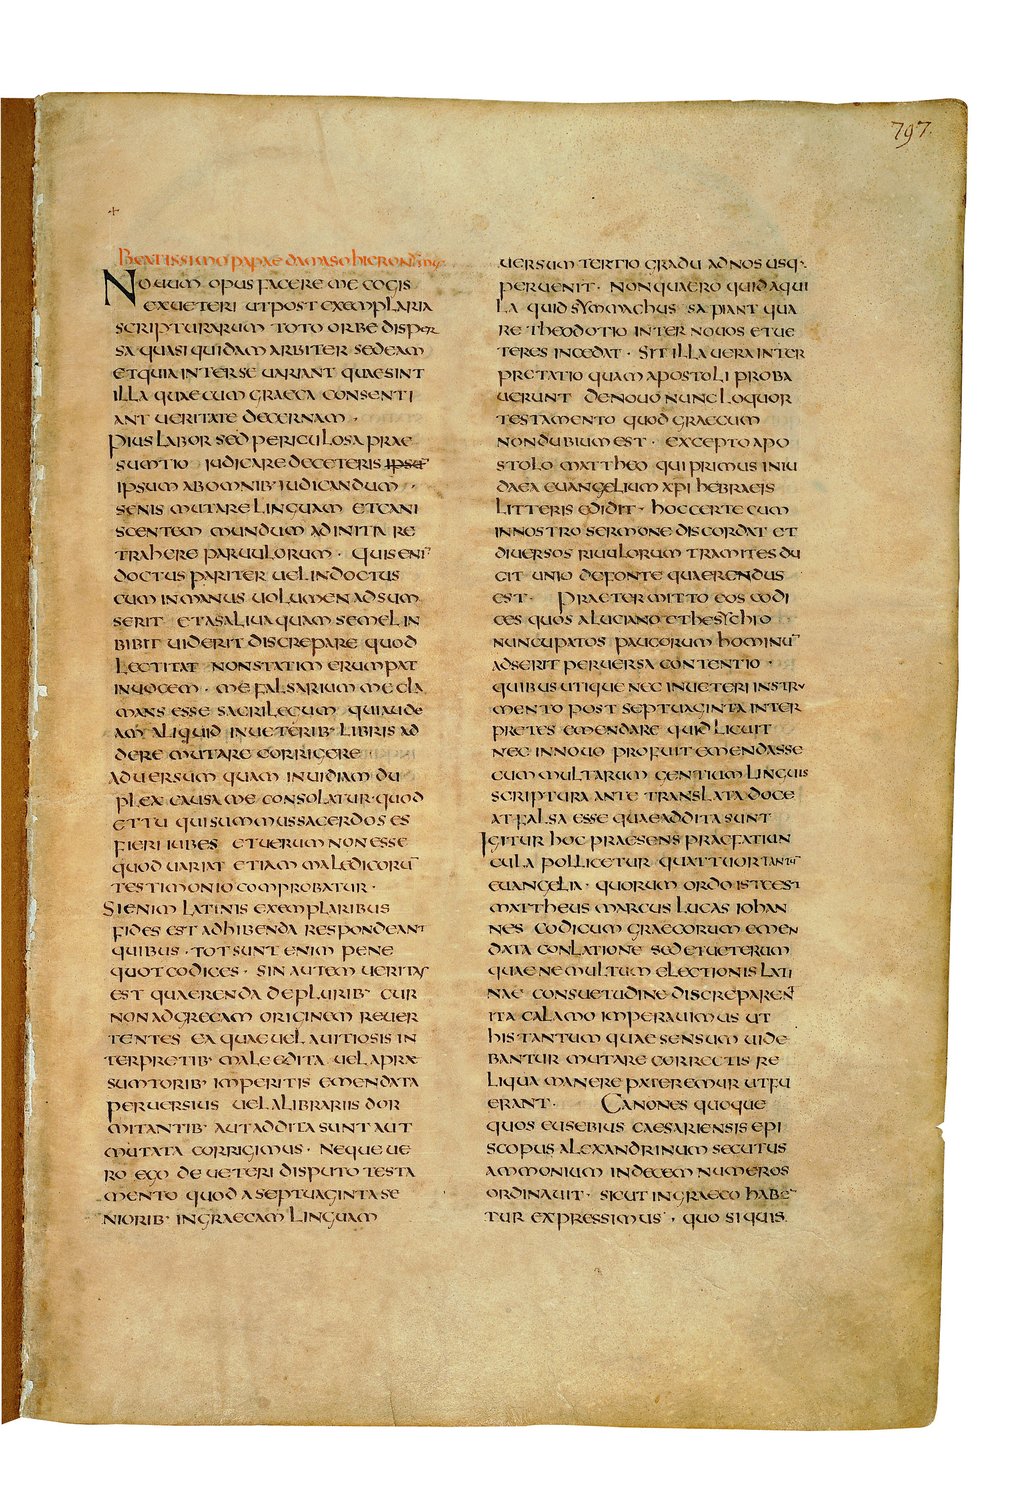 797.
BEATISSIMO PAPAE DAMASO HIERONIMUS
NOUUM OPUS FACERE ME COGIS
EXUETERI UTPOST EXEMPLARIA
SCRIPTURARUM TOTO ORBE DISPER
SA QUASI QUIDAM ARBITER SEDEAM
ETQUIA INTERSE UARIANT QUAESINT
ILLA QUAE CUM GRAECA CONSENTI
ANT UERITATE DECERNAM ·
PIUS LABOR SED PERICULOSA PRAE
SUMTIO IUDICARE DECETERIS IPSE
IPSUM ABOMNIB· IUDICANDUM ·
SENIS MUTARE LINGUAM ETCANI
SCENTEM MUNDUM AD INITIA RE
TRAHERE PARUULORUM · QUIS ENI¯
DOCTUS PARITER UEL INDOCTUS
CUM INMANUS UOLUMEN ADSUM
SERIT ETASALIUA QUAM SEMEL IN
BIBIT UIDERIT DISCREPARE QUOD
LECTITAT NONSTATIM ERUMPAT
INUOCEM · ME FALSARIUM ME CLA
MANS ESSE SACRILEGUM QUIAUDE
AM ALIQUID INUETERIB· LIBRIS AD
DERE MUTARE CORRIGERE ·
ADUERSUM QUAM INUIDIAM DU
PLEX CAUSA ME CONSOLATUR · QUOD
ET TU QUI SUMMUS SACERDOS ES
FIERI IUBES ETUERUM NON ESSE
QUOD UARIAT ETIAM MALEDICORU¯
TESTIMONIO COMPROBATUR ·
SIENIM LATINIS EXEMPLARIBUS
FIDES EST ADHIBENDA RESPONDEANT
QUIBUS · TOT SUNT ENIM PENE
QUOTCODICES · SIN AUTEM UERITAS
EST QUAERENDA DEPLURIB· CUR
NON AD GRECAM ORIGINEM REUER
TENTES EA QUAE UEL AUITIOSIS IN
TERPRETIB· MALE EDITA UEL APRAE
SUMTORIB· IMPERITIS EMENDATA
PERUERSIUS UEL ALIBRARIIS DOR
MITANTIB· AUT ADDITA SUNT AUT
MUTATA CORRIGIMUS · NEQUE UE
RO EGO DE UETERI DISPUTO TESTA
MENTO QUOD ASEPTUAGINTA SE
NIORIB· INGRAECAM LINGUAM
UERSUM TERTIO GRADU AD NOS USQ·
PERUENIT · NON QUAERO QUID AQUI
LA QUID SYMMACHUS SAPIANT QUA
RE THEODOTIO INTER NOUOS ET UE
TERES INCEDAT · SIT ILLA UERA INTER
PRETATIO QUAM APOSTOLI PROBA
UERUNT DENOUO NUNC LOQUOR
TESTAMENTO QUOD GRAECUM
NONDUBIUM EST · EXCEPTO APO
STOLO MATTHEO QUI PRIMUS INIU
DAEA EUANGELIUM XPI HEBRAEIS
LITTERIS EDIDIT · HOC CERTE CUM
INNOSTRO SERMONE DISCORDAT ET
DIUERSOS RIUULORUM TRAMITES DU
CIT UNIO DEFONTE QUAERENDUS
EST · PRAETERMITTO EOS CODI
CES QUOS A LUCIANO ETHESYCHIO
NUNCUPATOS PAUCORUM HOMINU¯
ADSERIT PERUERSA CONTENTIO ·
QUIBUS UTIQUE NEC INUETERI INSTRU
MENTO POST SEPTUAGINTA INTER
PRETES EMENDARE QUID LICUIT
NEC INNOUO PROFUIT EMENDASSE
CUM MULTARUM GENTIUM LINGUIS
SCRIPTURA ANTE TRANSLATA DOCE
AT FALSA ESSE QUAE ADDITA SUNT
IGITUR HOC PRAESENS PRAEFATIUN
CULA POLLICETUR QUATTUOR TANTU¯
EUANGELIA · QUORUM ORDO ISTE EST
MATTHEUS MARCUS LUCAS IOHAN
NES CODICUM GRAECORUM EMEN
DATA CONLATIONE SED ET UETERUM
QUAE NE MULTUM ELECTIONIS LATI
NAE CONSUETUDINE DISCREPARENT
ITA CALAMO IMPERAUIMUS UT
HIS TANTUM QUAE SENSUM UIDE
BANTUR MUTARE CORRECTIS RE
LIQUA MANERE PATEREMUR UTFU
ERANT · CANONES QUOQUE
QUOS EUSEBIUS CAESARIENSIS EPI
SCOPUS ALEXANDRINUM SECUTUS
AMMONIUM INDECEM NUMEROS
ORDINAUIT · SICUT IN GRAECO HABE¯
TUR EXPRESSIMUS · QUO SI QUIS